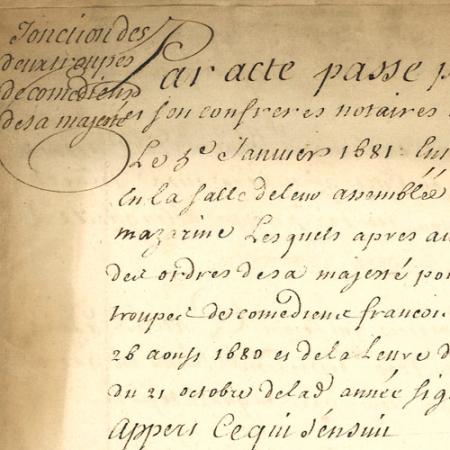 Jonction des
deux troupes
de comediens
de sa majesté
Par acte passé p
et son confreres notaires
Le 5e Janvier 1681 En
En la salle de leur assemblée
mazarine Lesquels apres au
des ordres de sa majesté po
troupes de comediens francois
26 aoust 1680 et de la Leure d
du 21 octobre de lad. année sig
Appert Ce qui s'ensuit